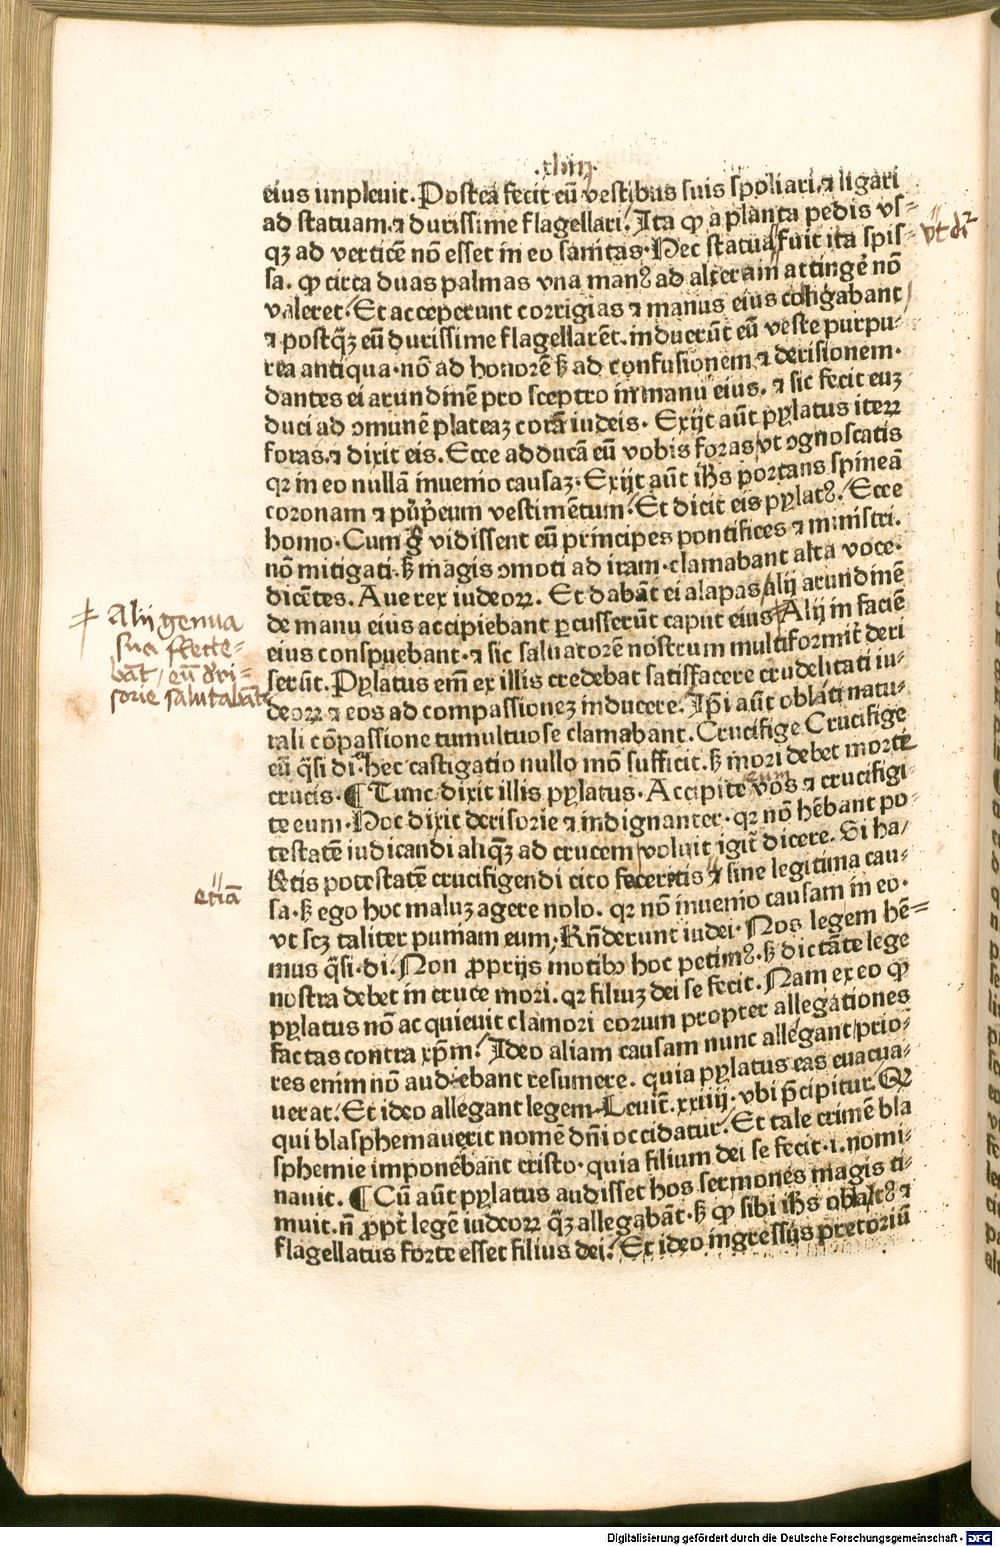 .xliiij.
eius impleuit. Postea fecit eū vestibus suis spoliari, ⁊ ligari
ad statuam. ⁊ durissime flagellari. Ita ꝙ a planta pedis vs⸗
qꝫ ad verticē nō esset in eo sanitas. Hec statua fuit ita spis⸗
vt dr̄
sa. ꝙ circa duas palmas vna manꝰ ad alteram attingē nō
valeret. Et acceperunt corrigias ⁊ manus eius coligabant
⁊ postqꝫ̄ eū durissime flagellarēt. induerūt eū veste purpu⸗
rea antiqua. nō ad honorē sꝫ ad confusionem ⁊ derisionem.
dantes ei arundinē pro sceptro in manu eius. ⁊ sic fecit euꝫ
duci ad ꝯmunē plateaꝫ corā iudeis. Exijt aūt pylatus iteꝝ
foras. ⁊ dixit eis. Ecce adducā eū vobis foras vt ꝯgnoscatis
qꝛ in eo nullā inuenio causaꝫ. Exijt aūt ih̄s portans spineā
coronam ⁊ purp̄eum vestimētum. Et dicit eis pylatꝰ. Ecce
homo. Cum gͦ vidissent eū principes pontifices ⁊ ministri.
nō mitigati. sꝫ magis ꝯmoti ad iram. clamabant alta voce.
dicētes. Aue rex iudeoꝝ. Et dabāt ei alapas alij arundinē
de manu eius accipiebant ꝑcusserūt caput eius Alij in faciē
Alij genua
sua flecte⸗
bāt / eū deri⸗
sorie salutabāt
eius conspuebant. ⁊ sic saluatorē nostrum multiformit̄ deri
serūt. Pylatus em̄ ex illis credebat satisfacere crudelitati iu⸗
deoꝝ ⁊ eos ad compassionez inducere. Ip̄i aūt oblati natu⸗
rali cōpassione tumultuose clamabant. Crucifige Crucifige
eū q̄si di. hec castigatio nullo mō sufficit. sꝫ mori debet morte
crucis. ¶ Tunc dixit illis pylatus. Accipite eum vos ⁊ crucifigi⸗
te eum. Hoc dixit derisorie ⁊ indignanter. qꝛ nō hēbant po⸗
testatē iudicandi aliqꝫ̄ ad crucem voluit igit̄ dicere. Si ha⸗
betis potestatē crucifigendi cito faceretis ⁊ sine legitima cau⸗
etiā
sa. sꝫ ego hoc maluꝫ agere nolo. qꝛ nō inuenio causam in eo.
vt scꝫ taliter puniam eum. Rn̄derunt iudei. Nos legem hē⸗
mus q̄si. di. Non ꝓprijs motibꝫ hoc petimꝰ. sꝫ dictāte lege
nostra debet in cruce mori. qꝛ filiuꝫ dei se fecit. Nam ex eo ꝙ
pylatus nō acquieuit clamori eorum propter allegationes
factas contra xp̄m. Ideo aliam causam nunc allegant prio⸗
res enim nō audebant resumere. quia pylatus eas euacua⸗
uerat. Et ideo allegant legem Leuit̄. xxiiij. vbi p̄cipitur. Qꝛ
qui blasphemauerit nomē dn̄i occidatur. Et tale crimē bla
sphemie imponebant cristo. quia filium dei se fecit. i. nomi⸗
nauit. ¶ Cū aūt pylatus audisset hos sermones magis ti⸗
muit. nō ꝓpt̄ legē iudeoꝝ qꝫ̄ allegabāt. sꝫ ꝙ sibi ih̄s oblatꝰ ⁊
flagellatus forte esset filius dei. Et ideo ingressus pretoriū
Digitalisierung gefördert durch die Deutsche Forschungsgemeinschaft - DFG